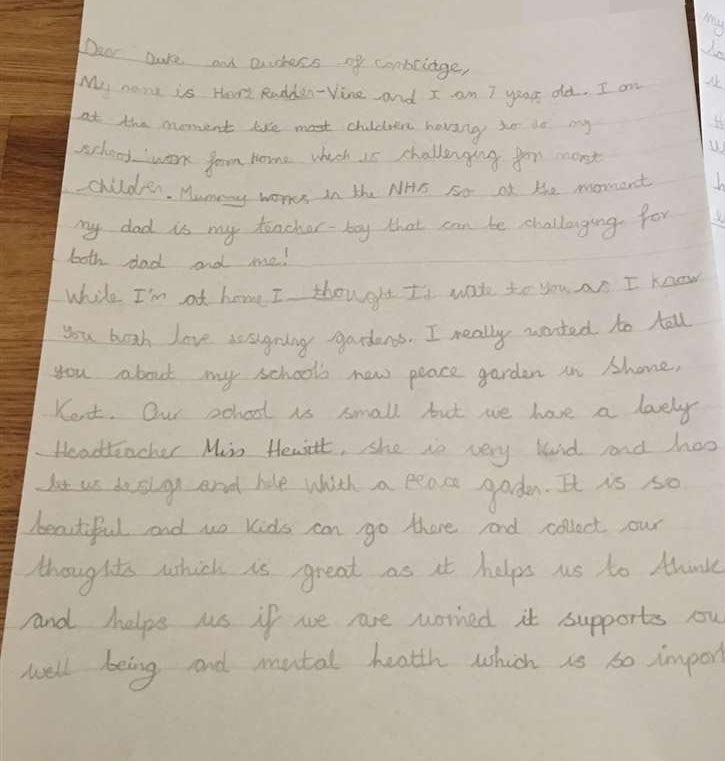 Dear Duke and Duchess of Cambridge,
My name is Rudder-Vine and I am 7 years old. I am
at the moment like most children having to do my
school work form Home which is challenging for most
children. Mummy works in the NHS so at the moment
my dad is my teacher - boy that can be challenging for
both dad and me!
While I'm at home I thought I'd write to you as I know
you both love designing gardens. I really wanted to tell
you about my school's new peace garden in Shorne,
Kent. Our school is small but we have a lovely
Headteacher Miss Hewitt, she is very kind and has
let us design and help which a Peace garden. It is so
beautiful and us kids can go there and collect our
thoughts which is great as it helps us to think
and helps us if we are worried it supports ou
well being and mental health which is so import
my